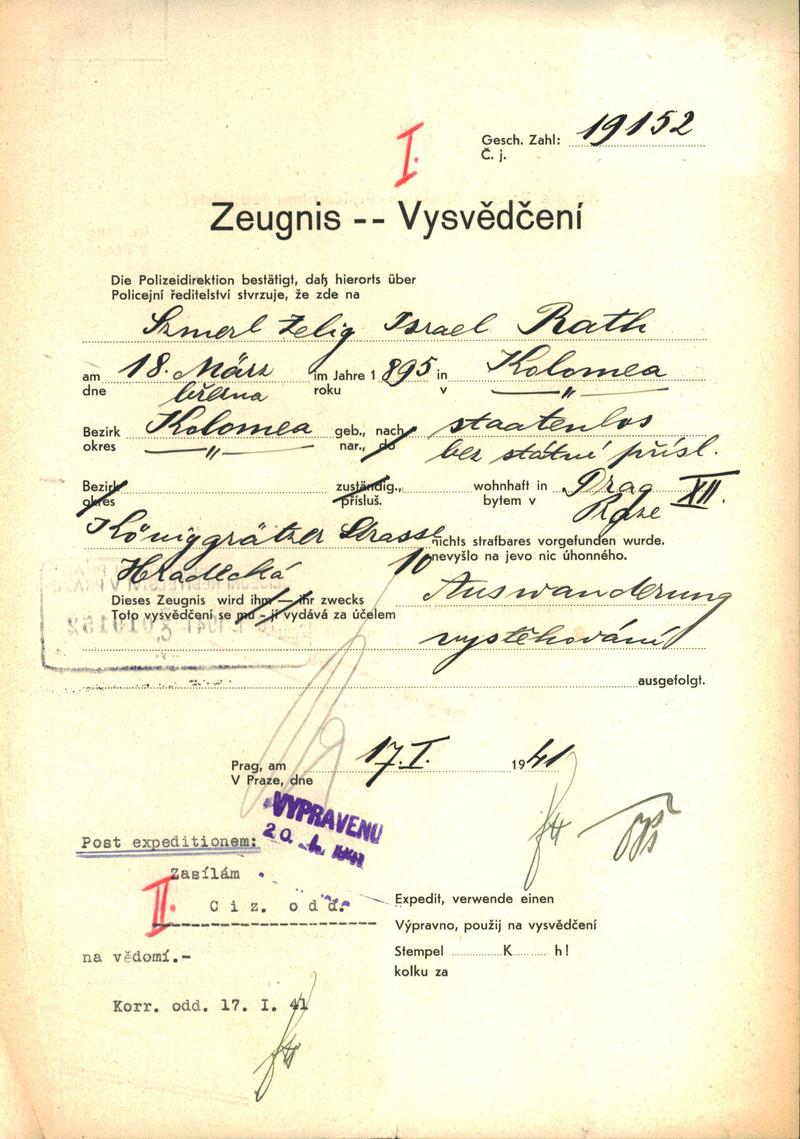 Gesch. Zahl: 19152
Č. j.
I.
Zeugnis -- Vysvědčení
Die Polizeidirektion bestätigt, daß hierorts über
Policejní ředitelství stvrzuje, že zde na
Szmerl Zelig Israel Rath
am 18. März im Jahre 1895 in Kolomea
dne března roku v —〃—
Bezirk Kolomea geb., nach staatenlos
okres —〃— nar., do bez státní přísl.
Bezirk zuständig., wohnhaft in Prag XII.
okres přísluš. bytem v Praze
Königgrätzer Strasse nichts strafbares vorgefunden wurde.
Hradecká 10 nevyšlo na jevo nic úhonného.
Dieses Zeugnis wird ihm — ihr zwecks Auswanderung
Toto vysvědčení se mu - jí vydává za účelem
vystěhování
ausgefolgt.
Prag, am 17. I. 1941
V Praze, dne
VYPRAVENO
20. 1941
Post expeditionem:
Zasílám
II. Ciz. odd.
na vědomí.-
Korr. odd. 17. I. 41
Expedit, verwende einen
Výpravno, použij na vysvědčení
Stempel K h!
kolku za